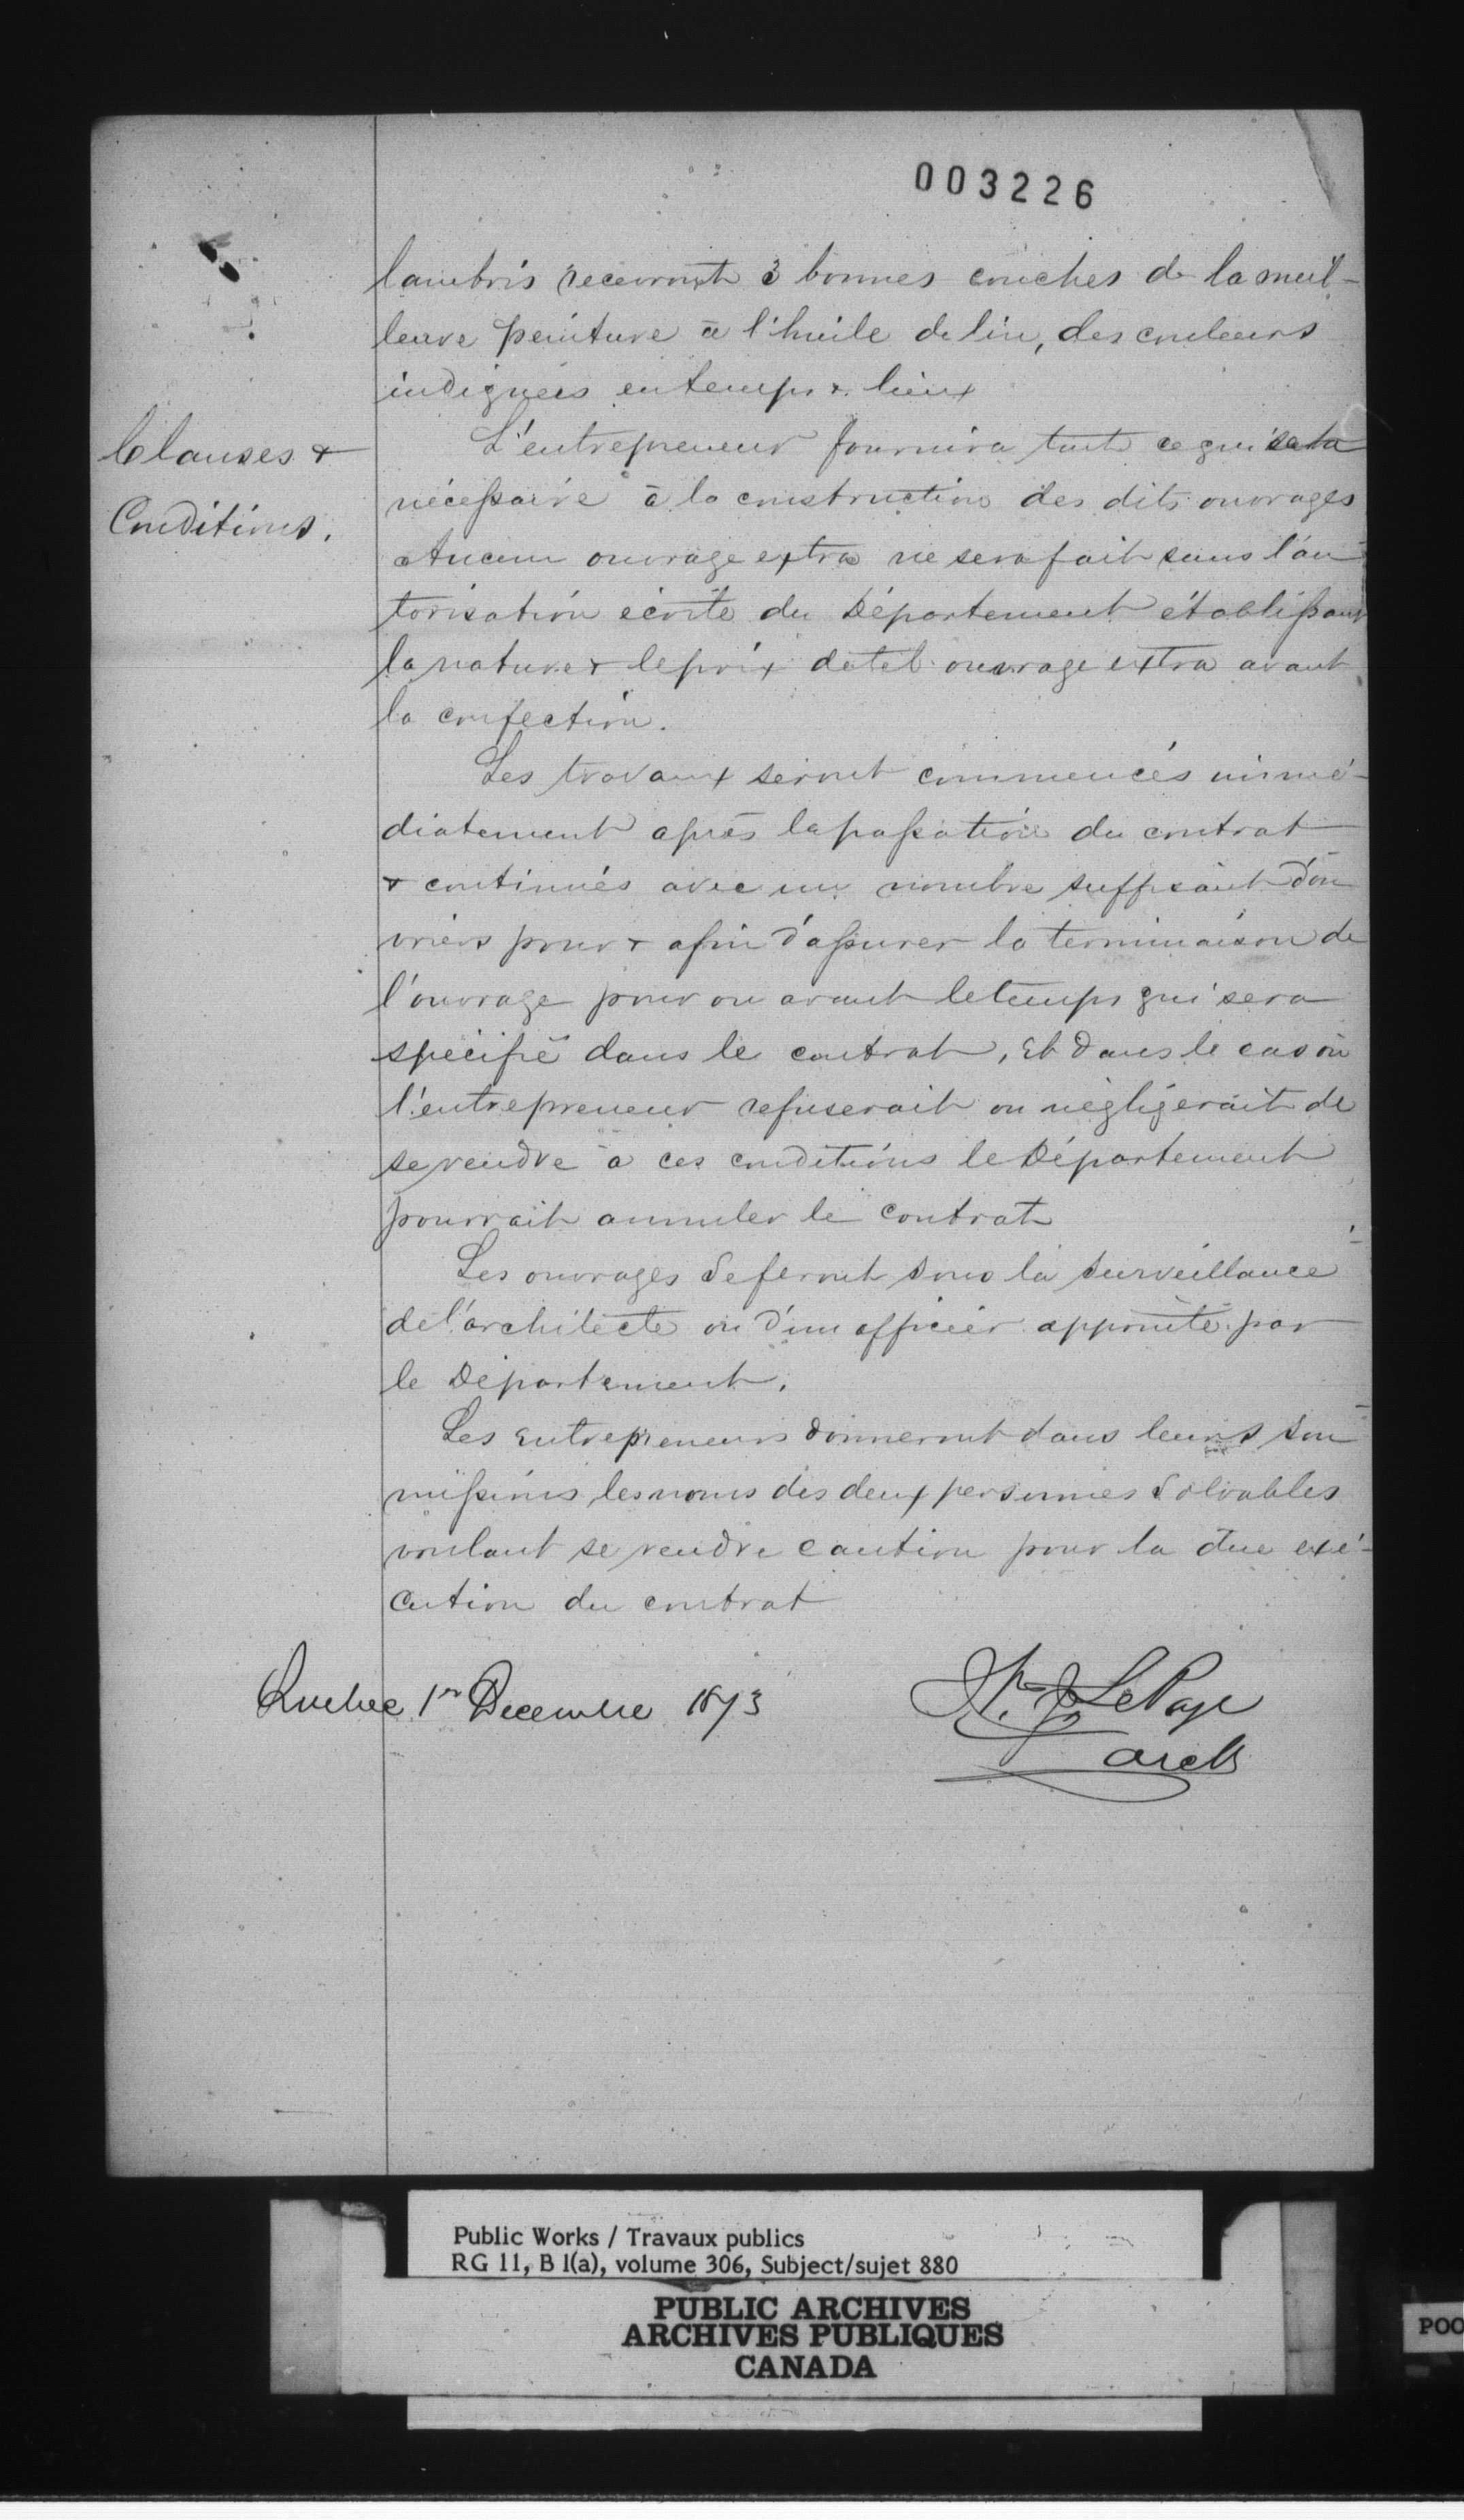 003226
lambris recevront 3 bonnes couches de la meil-
leure peinture à l'huile de lin, des couleurs
indiquées en temps & lieux
Clauses &
Conditions.
L'entrepreneur fournira tout ce qui sera
nécessaire à la construction des dits ouvrages
Aucun ouvrage extra ne sera fait sans l'au-
torisation écrite du Département établissant
la nature & le prix de tel ouvrage extra avant
la confection.
Les travaux seront commencés immé-
diatement après la passation du contrat
& continués avec un nombre suffisant d'ou-
vriers pour & afin d'assurer la terminaison de
l'ouvrage pour ou avant le temps qui sera
spécifié dans le contrat, et dans le cas où
l'entrepreneur refuserait ou négligerait de
se rendre à ces conditions le Département
pourrait annuler le contrat
Les ouvrages se feront sous la surveillance
de l'architecte ou d'un officier appointé par
le Département.
Les entrepreneurs donneront dans leurs sou-
missions les noms des deux personnes solvables
voulant se rendre caution pour la due exé-
cution du contrat
Quebec 1er Decembre 1873
LePage
archt
Public Works / Travaux publics
RG 11, B 1(a), volume 306, Subject/sujet 880
PUBLIC ARCHIVES
ARCHIVES PUBLIQUES
CANADA
POO